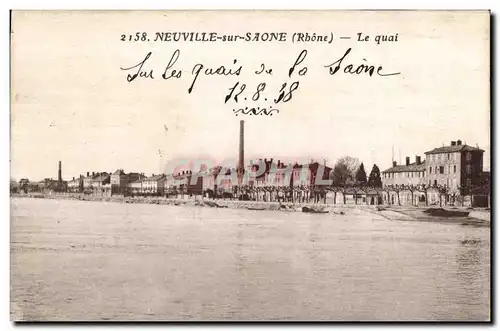 2158. NEUVILLE-sur-SAONE (Rhône) — Le quai
Sur les quais de la Saône
12.8.38